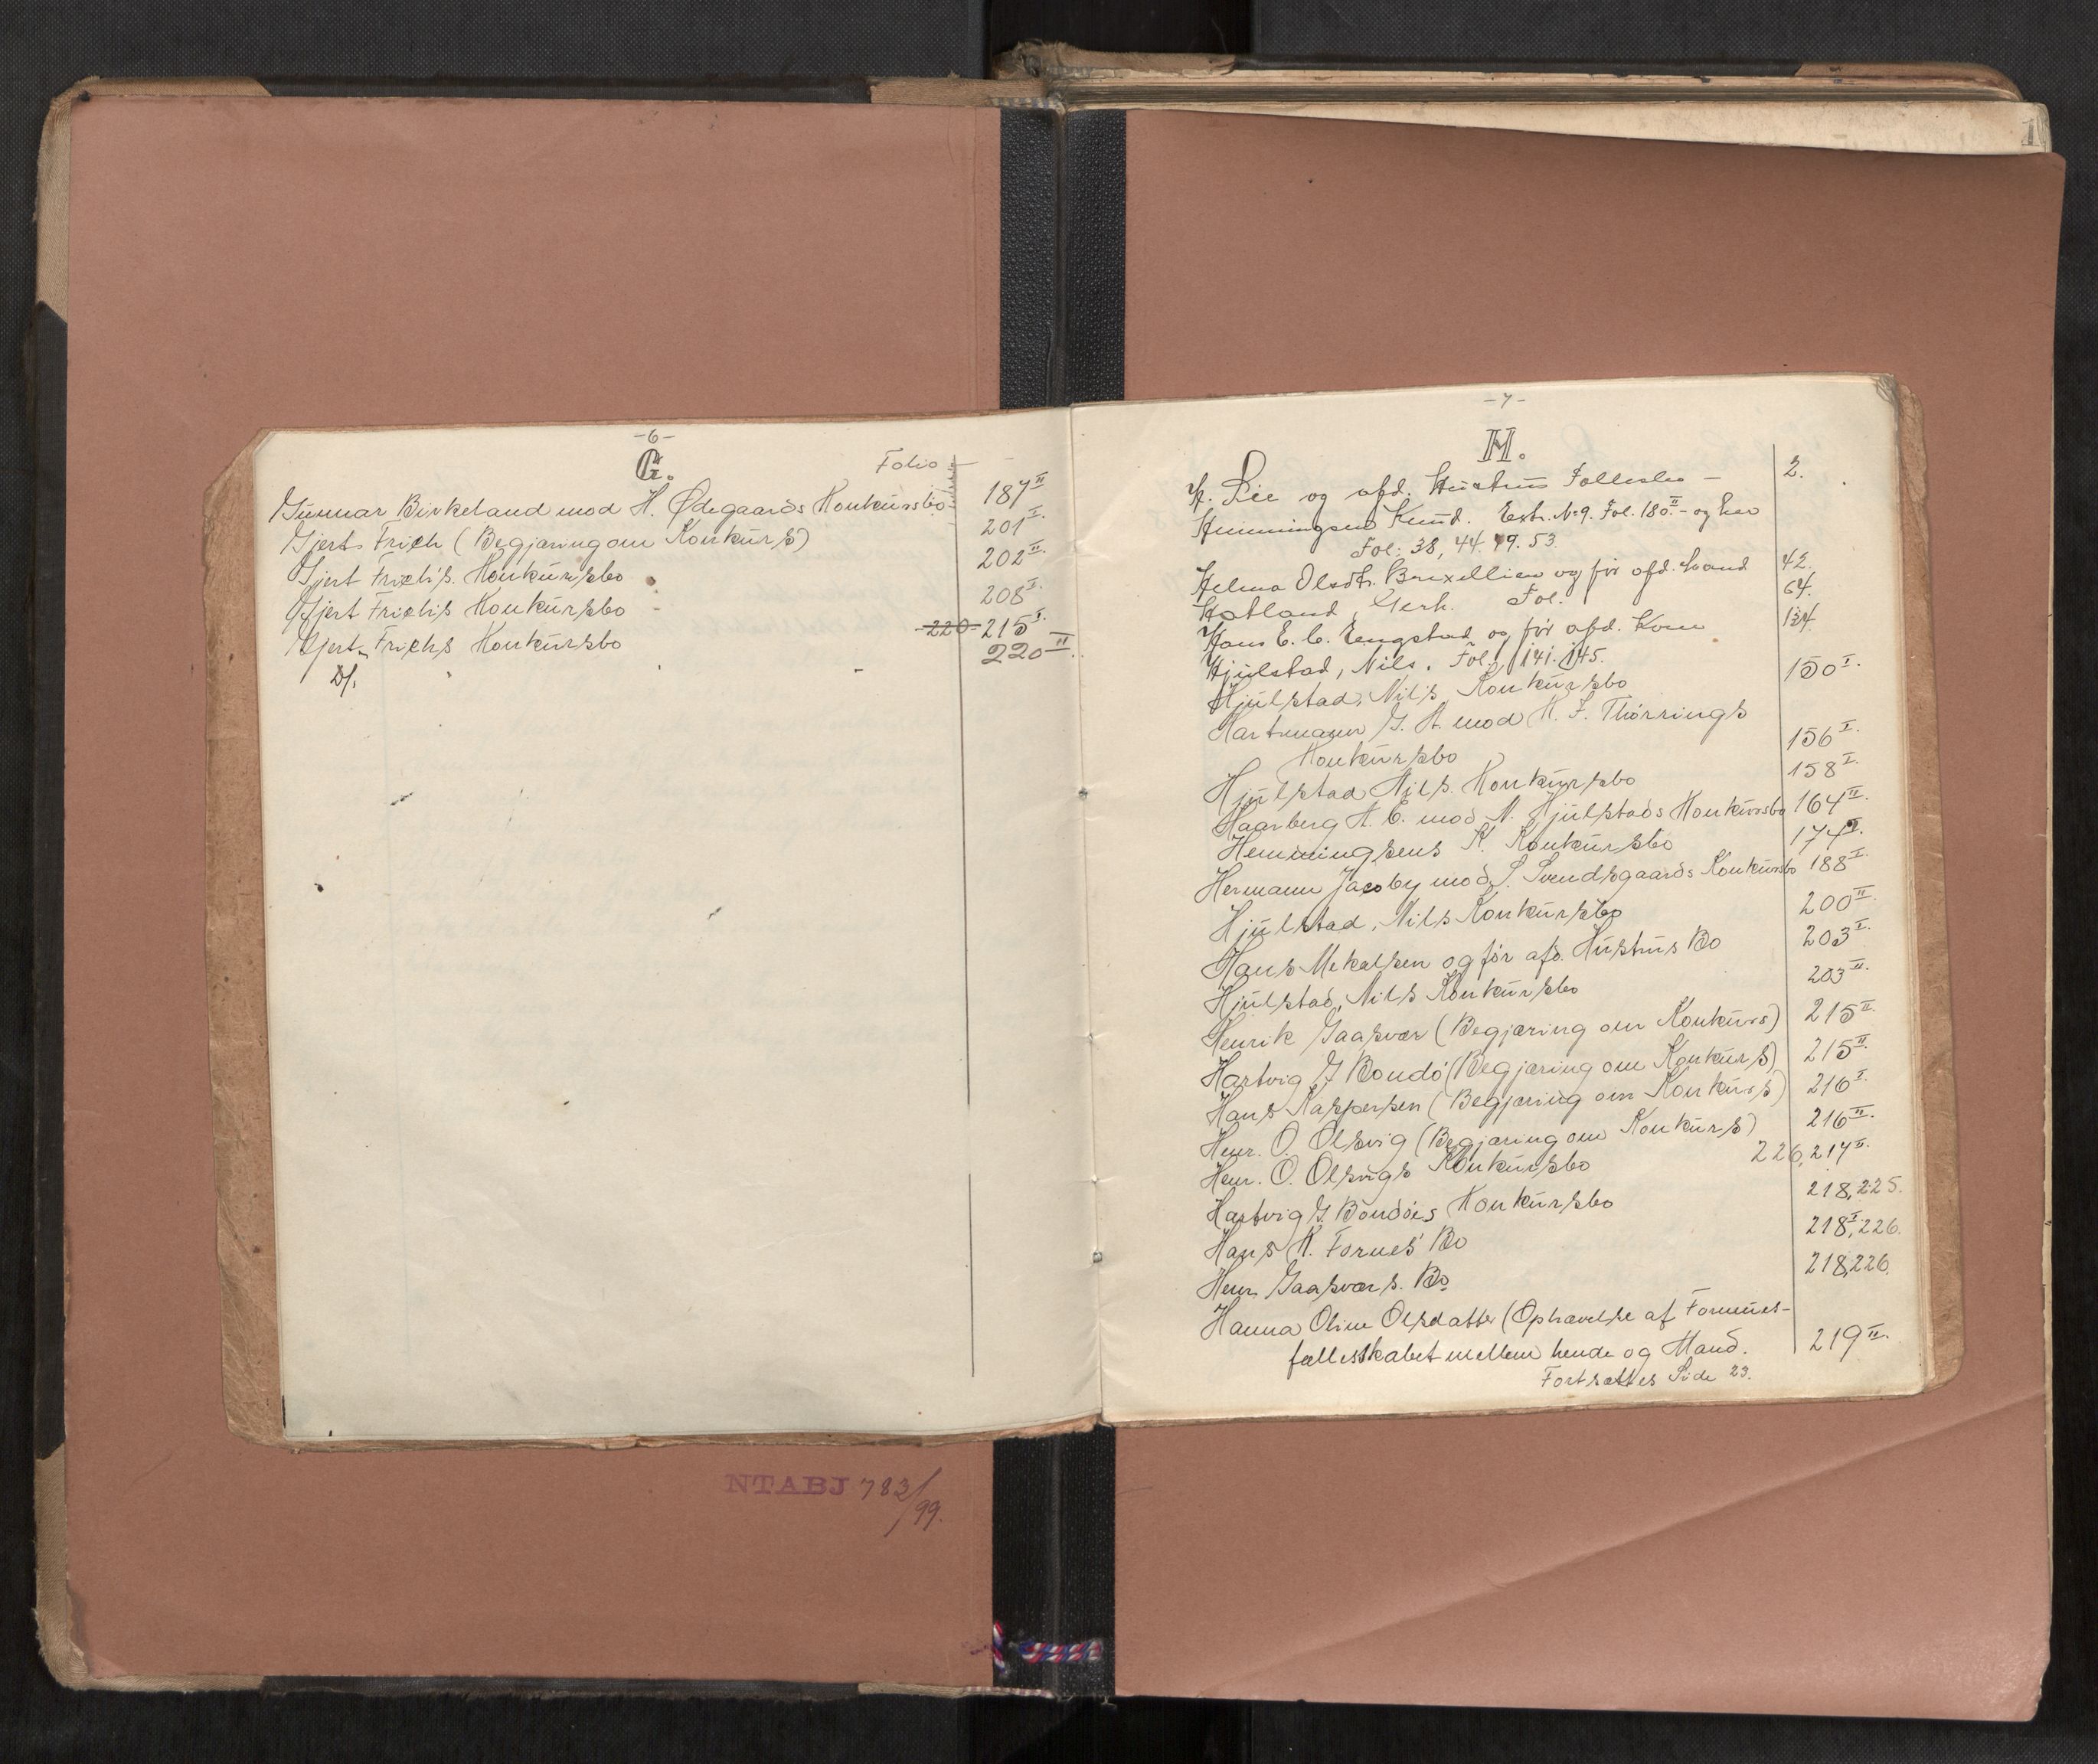 -6-
G.
Folio
Gunnar Birkeland mod H. Ødegaards Konkursbo 187 II
Gjert Frich (Begjæring om Konkurs) 201 I.
Gjert Frichs. Konkursbo 202 II.
Gjert Frichs Konkursbo 208 I.
Gjert Frichs Konkursbo 220 215 I.
D/. 220 II.
NTABJ 783/99.
-7-
H.
H. Lie og afd. Hustrus Fællesbo - 2.
Hemmingsen Knud. Extr. No 9. Fol. 180 II - og her
Fol: 38, 44. 49. 53.
Helma Olsdtr. Brixellien og for afd. Mand 42.
Hatland, Gerh. Fol. 64.
Hans E. C. Engstad og for afd. Kone 134
Hjulstad, Nils. Fol. 141. 145.
Hjulstad, Nils Konkursbo 150 I.
Hartmann G. A. mod H. F. Thorrings
Konkursbo 156 I.
Hjulstad Nils. Konkursbo 158 I.
Haarberg A. C. mod N. Hjulstads Konkursbo 164 II.
Hemmingsens K. Konkursbo 174 I.
Hermann Jacoby mod S. Svendsgaards Konkursbo 188 I.
Hjulstad, Nils Konkursbo 200 II.
Hans Mikalsen og for afd. Hustrus Bo 203 I.
Hjulstad, Nils Konkursbo 203 II.
Henrik Gaasvær (Begjæring om Konkurs) 215 II.
Hartvig J Bondø (Begjæring om Konkurs) 215 II.
Hans Kaspersen (Begjæring om Konkurs) 216 I.
Henr. O. Olsvig (Begjæring om Konkurs) 216 II.
Henr. O. Olsvigs Konkursbo 226, 217 II.
Hartvig J. Bondøes Konkursbo 218, 225.
Hans K. Fornes' Bo 218 I, 226.
Henr. Gaasværs. Bo 218, 226.
Hanna Oline Olsdatter (Ophævelse af Formues-
fællesskabet mellem hende og Mand. 219 II.
Fortsættes Side 23.